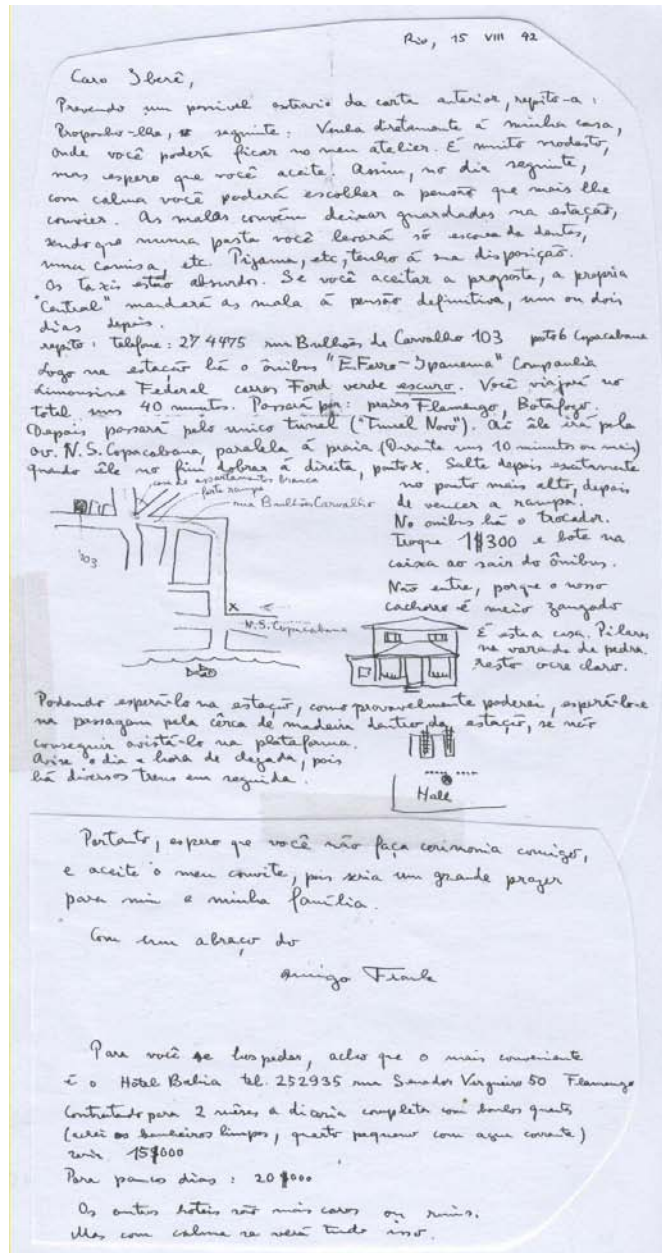 Rio, 15 VIII 42
Caro Iberê,
Prevendo um possivel extravio da carta anterior, repito-a:
Proponho-lhe, o seguinte: Venha diretamente á minha casa,
onde você poderá ficar no meu atelier. É muito modesto,
mas espero que você aceite. Assim, no dia seguinte,
com calma você poderá escolher a pensão que mais lhe
convier. As malas convém deixar guardadas na estação,
sendo que numa pasta você levará só escova de dentes,
uma camisa, etc. Pijama, etc, tenho á sua disposição.
Os taxis estão absurdos. Se você aceitar a proposta, a propria
"Central" mandará as mala á pensão definitiva, um ou dois
dias depois.
repito: telefone: 27 4475 rua Bulhões de Carvalho 103 posto 6 Copacabana
Logo na estação há o ônibus "E.Ferro-Ipanema" Companhia
Limousine Federal carros Ford verde escuro. Você viajará no
total uns 40 minutos. Passará por: praias Flamengo, Botafogo.
Depois passará pelo unico tunel ("Tunel Novo"). Aí êle irá pela
av. N.S. Copacabana, paralela á praia (Durante uns 10 minutos ou mais)
quando êle no fim dobrar á direita, ponto x. Salte depois exatamente
no ponto mais alto, depois
de vencer a rampa.
No onibus há o trocador.
Troque 1$300 e bote na
caixa ao sair do ônibus.
Não entre, porque o nosso
cachorro é meio zangado
casa de apartamentos branca
forte rampa
rua Bulhões Carvalho
103
x
N.S. Copacabana
É esta a casa. Pilares
na varada de pedra.
resto ocre claro.
Podendo esperá-lo na estação, como provavelmente poderei, esperá-lo-ei
na passagem pela cêrca de madeira dentro da estação, se não
conseguir avistá-lo na plataforma.
Avise o dia e hora de chegada, pois
há diversos trens em seguida.
Hall
Portanto, espero que você não faça cerimonia comigo,
e aceite o meu convite, pois seria um grande prazer
para mim e minha família.
Com um abraço do
amigo Frank
Para você se hospedar, acho que o mais conveniente
é o Hotel Bahia tel. 252935 rua Senador Vergueiro 50 Flamengo
Contratado para 2 mêses a diaria completa com banhos quentes
banheiros limpos, quarto pequeno com agua corrente)
15$000
Para poucos dias: 20$000
Os outros hoteis são mais caros ou ruins.
Mas com calma se verá tudo isso.